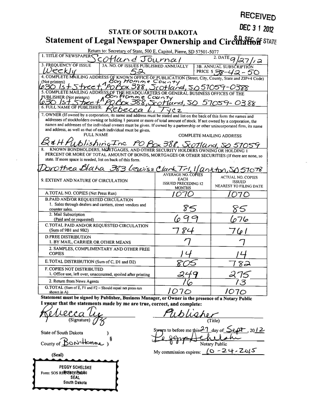 RECEIVED
DEC 31 2012
STATE OF SOUTH DAKOTA
Statement of Legal Newspaper Ownership and Circulation
S.D. SEC. OF STATE
Return to: Secretary of State, 500 E. Capitol, Pierre, SD 57501-5077
1. TITLE OF NEWSPAPER
Scotland Journal
2. DATE 9/27/12
3. FREQUENCY OF ISSUE
Weekly
3A. NO. OF ISSUES PUBLISHED ANNUALLY
52
3B. ANNUAL SUBSCRIPTION
PRICE $ 38-42-50
4. COMPLETE MAILING ADDRESS OF KNOWN OFFICE OF PUBLICATION (Street, City, County, State and ZIP+4 Code)
(Not printers) Bon Homme County
630 1st Street, PO Box 388, Scotland, SD 57059-0388
5. COMPLETE MAILING ADDRESS OF THE HEADQUARTERS OF GENERAL BUSINESS OFFICES OF THE
PUBLISHER (Not printer) Bon Homme County
630 1st Street, PO Box 388, Scotland, SD 57059-0388
6. FULL NAME OF PUBLISHER: Rebecca L. Tycz
7. OWNER (If owned by a corporation, its name and address must be stated and list on the back of this form the names and
addresses of stockholders owning or holding 1 percent or more of total amount of stock. If not owned by a corporation, the
names and addresses of the individual owners must be given. If owned by a partnership or other unincorporated firm, its name
and address, as well as that of each individual must be given.
FULL NAME
COMPLETE MAILING ADDRESS
B & H Publishing Inc. PO Box 388, Scotland, SD 57059
8. KNOWN BONDHOLDERS, MORTGAGEES, AND OTHER SECURITY HOLDERS OWNING OR HOLDING 1
PERCENT OR MORE OF TOTAL AMOUNT OF BONDS, MORTGAGES OR OTHER SECURITIES (If there are none, so
state. If more space is needed, list on back of this form.
Dorothea Blaha 383 Lewis & Clark Trl, Yankton, SD 57078
9. EXTENT AND NATURE OF CIRCULATION
AVERAGE NO. COPIES
EACH
ISSUED PRECEDING 12
MONTHS
ACTUAL NO. COPIES
ISSUED
NEAREST TO FILING DATE
A. TOTAL NO. COPIES (Net Press Run)
1070
1070
B. PAID AND/OR REQUESTED CIRCULATION
1. Sales through dealers and carriers, street vendors and
counter sales.
85
85
2. Mail Subscription
(Paid and or requested)
699
676
C. TOTAL PAID AND/OR REQUESTED CIRCULATION
(Sum of 9B1 and 9B2)
784
761
D. FREE DISTRIBUTION
1. BY MAIL, CARRIER OR OTHER MEANS
7
7
2. SAMPLES, COMPLIMENTARY AND OTHER FREE
COPIES
14
14
E. TOTAL DISTRIBUTION (Sum of C, D1 and D2)
805
782
F. COPIES NOT DISTRIBUTED
1. Office use, left over, unaccounted, spoiled after printing
249
275
2. Return from News Agents
16
13
G. TOTAL (Sum of E, F1 and F2 - Should equal net press run
shown in A)
1070
1070
Statement must be signed by Publisher, Business Manager, or Owner in the presence of a Notary Public
I swear that the statements made by me are true, correct, and complete:
Rebecca Tycz
Publisher
(Signature)
(Title)
State of South Dakota
County of Bon Homme
Sworn to before me this 27 day of Sept, 2012
Peggy Schelske
Notary Public
My commission expires: 10-24-2015
(Seal)
PEGGY SCHELSKE
NOTARY PUBLIC
SEAL
South Dakota